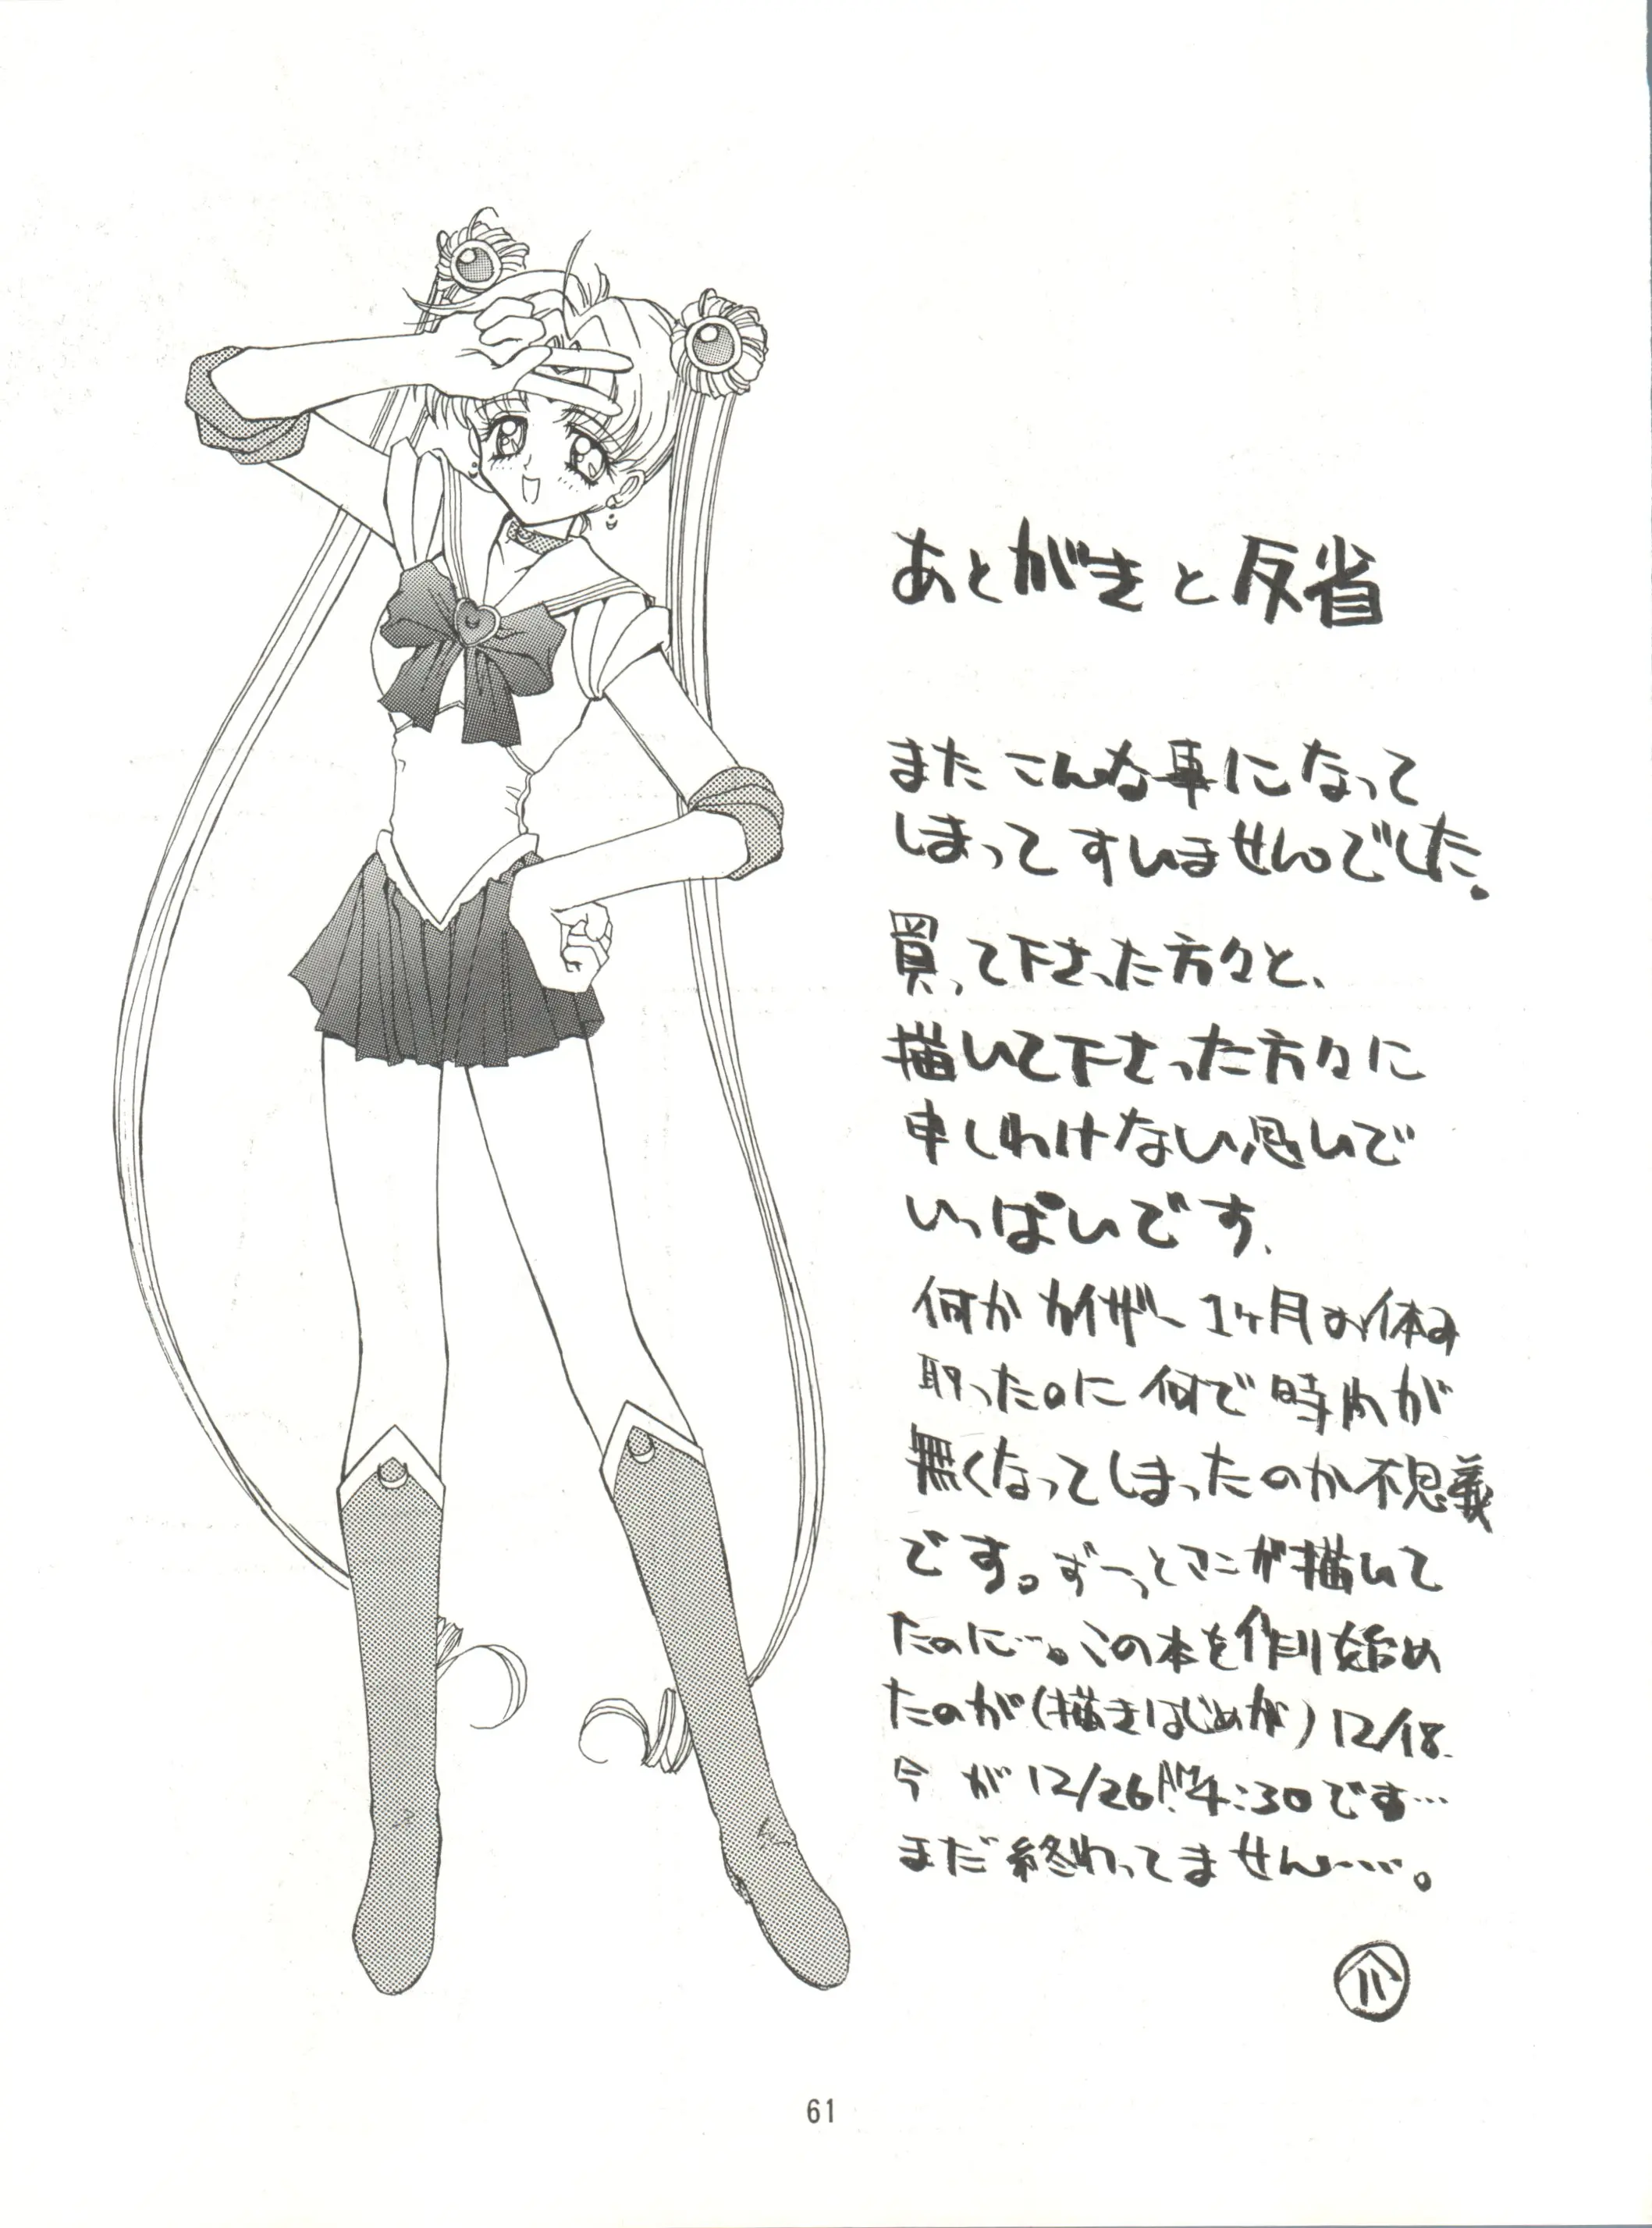 あとがきと反省
また こんな事になって
しまって すいませんでした。
買って下さった方々と、
描いて下さった方々に
申しわけない思いで
いっぱいです、
何か カイザー 1ヶ月お休み
取ったのに 何で 時間が
無くなってしまったのか不思議
です。ずーっとマンガ描いて
たのに…。この本を作り始め
たのが(描きはじめが) 12/18.
今 が 12/26! AM4:30です…
まだ 終わってません……。
介
61